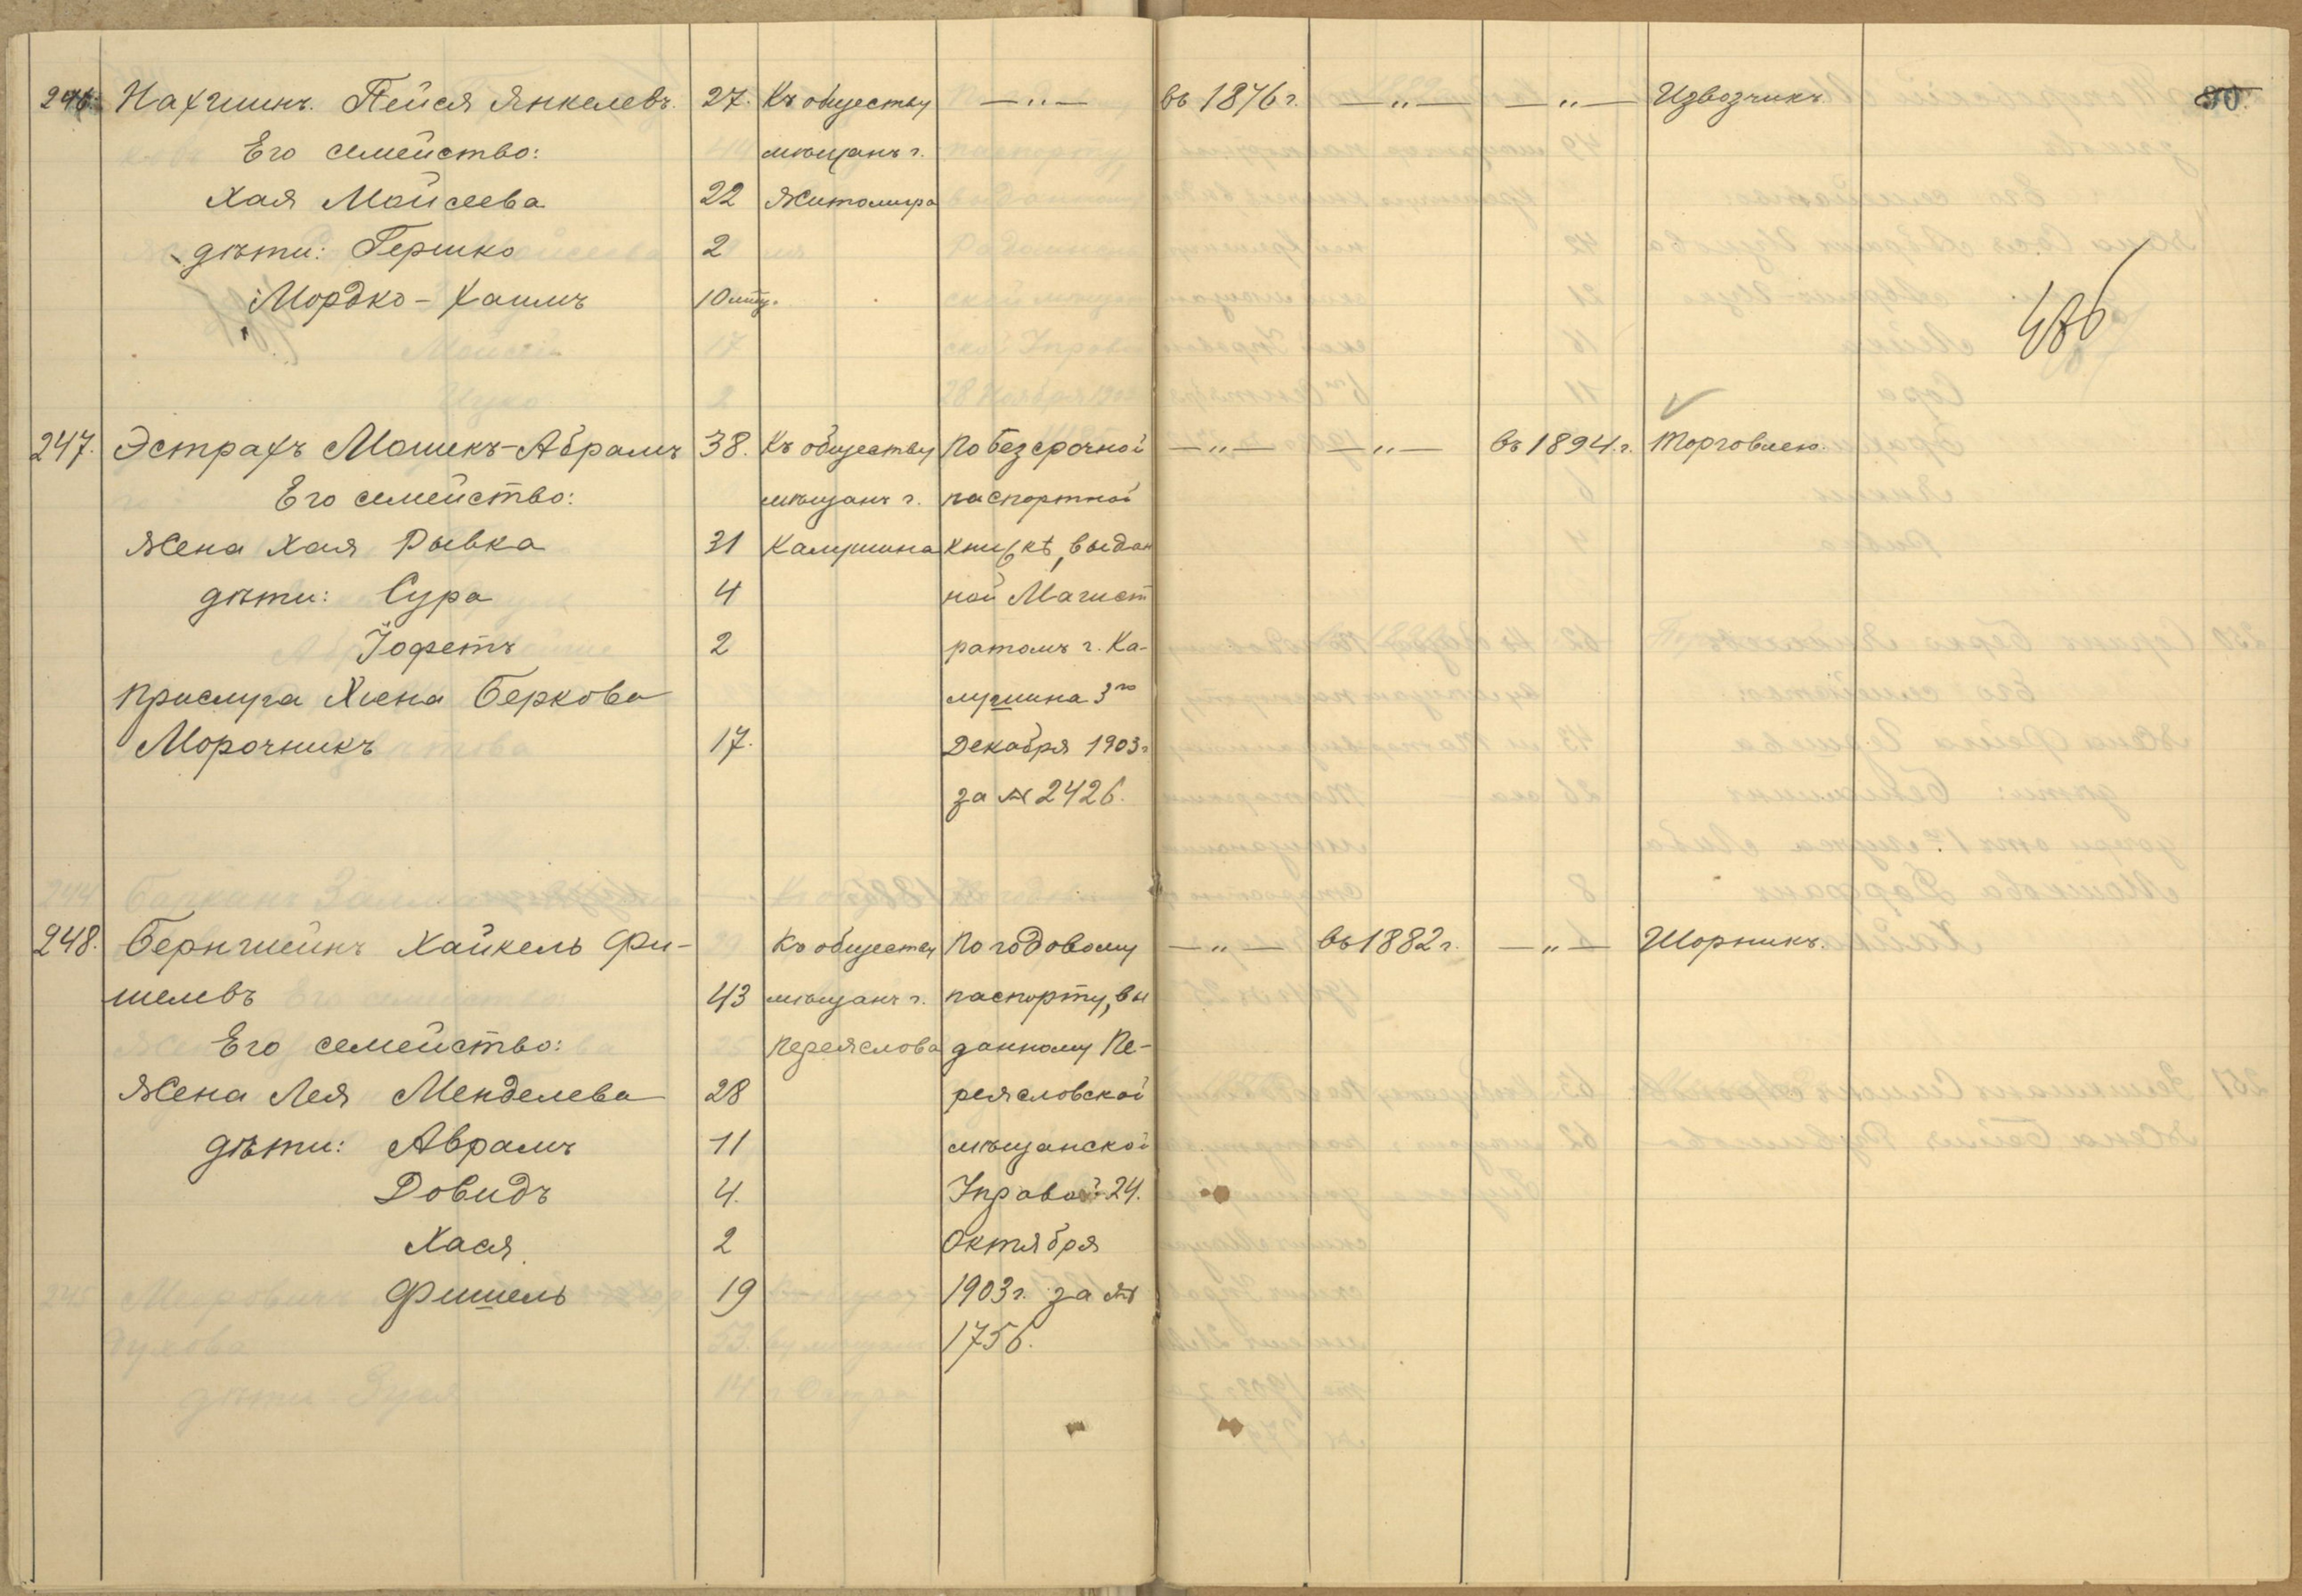 246. Нахгшинъ. Пейся Янкелевъ. 27. Къ обществу —"— въ 1876 г. —"— —"— Извозчикъ. 90.
Его семейство: мѣщанъ г.
Хая Мойсеева 22 Житомира
дѣти: Гершко 2
Мордко-Хаимъ 10 мѣц. 486
247. Эстрахъ Мошекъ-Абрамъ 38. Къ обществу По безсрочной —"— —"— въ 1894.г. Торговлею.
Его семейство: мѣщанъ г. паспортной
Жена Хая Рывка 31 Калушина книжкѣ, выдан
дѣти: Сура 4 ной Магист
Іофетъ 2 ратомъ г. Ка-
Прислуга Хиена Беркова лушина 3го
Морочникъ 17. Декабря 1903 г
за № 2426.
248. Бернштейнъ Хайкель Фи- Къ обществу По годовому —"— въ 1882 г. —"— Шорникъ.
шелевъ 43 мѣщанъ г. паспорту, вы
Его семейство: Переяслова данному Пе-
Жена Лея Менделева 28 реясловской
дѣти: Аврамъ 11 мѣщанской
Довидъ 4. Управой 24.
Хася 2 Октября
Фишель 19 1903 г. за №
1756.